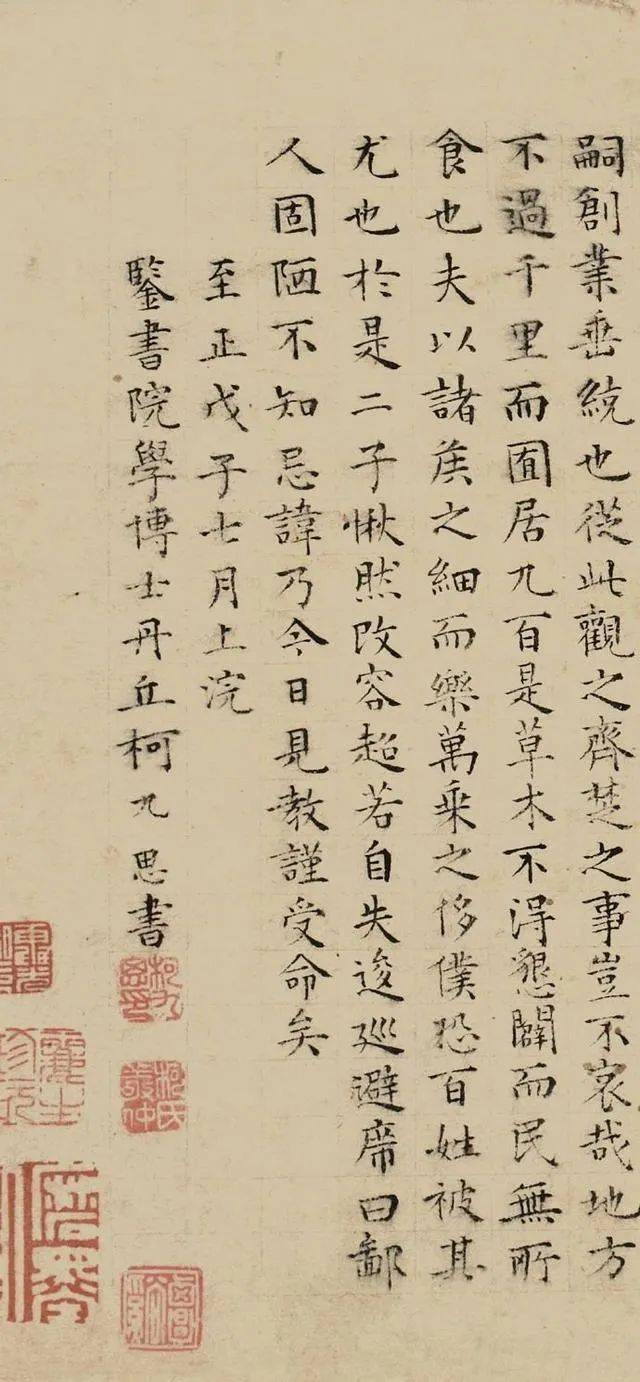 嗣創業垂統也從此觀之齊楚之事豈不哀哉地方
不過千里而囿居九百是草木不得懇闢而民無所
食也夫以諸侯之細而樂萬乘之侈僕恐百姓被其
尤也於是二子愀然改容超若自失逡廵避席曰鄙
人固陋不知忌諱乃今日見教謹受命矣
至正戊子七月上浣
鑒書院學博士丹丘柯九思書
柯九思印
柯氏敬仲